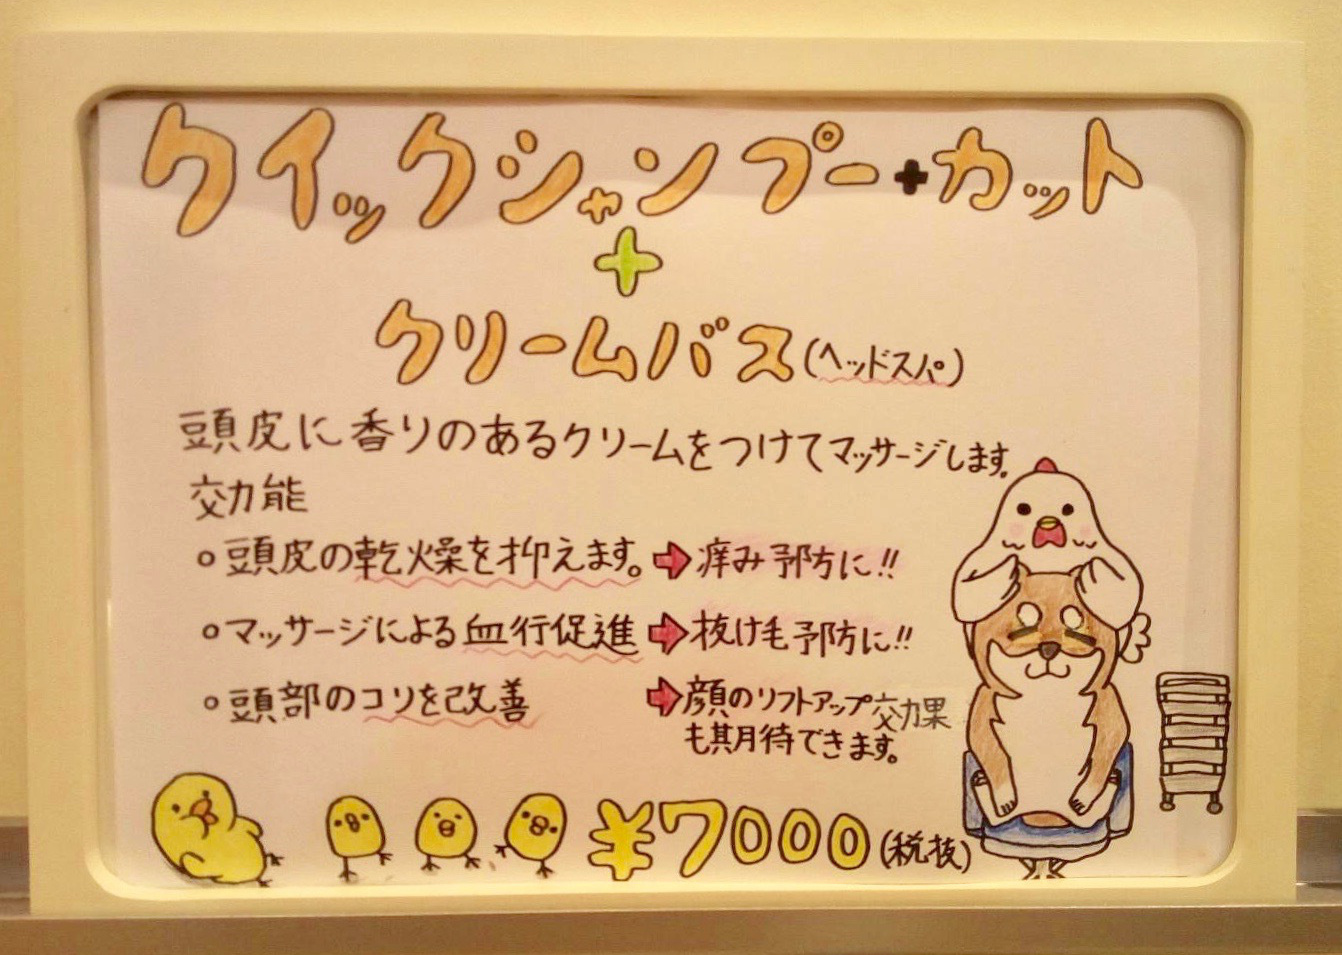 クイックシャンプー+カット
+
クリームバス(ヘッドスパ)
頭皮に香りのあるクリームをつけてマッサージします。
効能
○頭皮の乾燥を抑えます。➡痒み予防に!!
○マッサージによる血行促進➡抜け毛予防に!!
○頭部のコリを改善➡顔のリフトアップ効果
も期待できます。
¥7000(税抜)